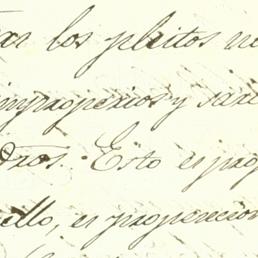 los pleitos
improperios y
dros. Esto es
ello, es proporcion